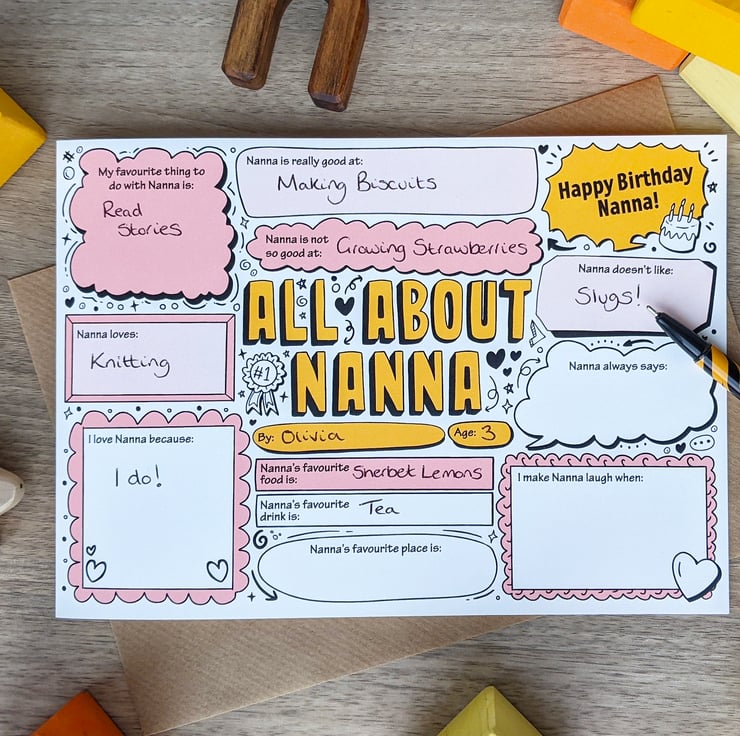 My favourite thing to
do with Nanna is:
Read
Stories
Nanna is really good at:
Making Biscuits
Happy Birthday
Nanna!
Nanna is not
so good at:
Growing Strawberries
Nanna doesn't like:
Slugs!
ALL ABOUT
NANNA
#1
Nanna loves:
Knitting
Nanna always says:
By: Olivia
Age: 3
I love Nanna because:
I do!
Nanna's favourite
food is:
Sherbet Lemons
Nanna's favourite
drink is:
Tea
Nanna's favourite place is:
I make Nanna laugh when: